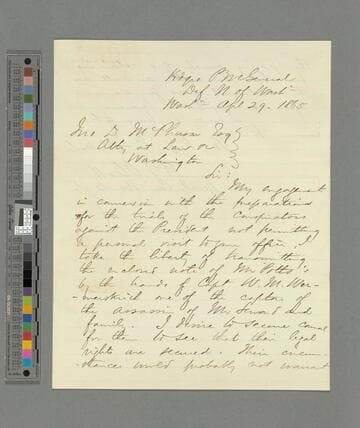 Hdqrs P M General
Def N of Wash
Wash Apl 29. 1865
Jno D. McPherson Esq
Atty at Law &c
Washington
Sir:
My engagements
in connexion with the preparations
for the trials of the Conspirators
against the President not permitting
a personal visit to your office, I
take the liberty of transmitting
the inclosed note of Mr Potts
by the hands of Capt W. M. Wer-
-merskirch one of the captors of
the assassin of Mr Seward and
family. I desire to secure counsel
for them to see that their legal
rights are secured. Their circum-
-stances would probably not warrant